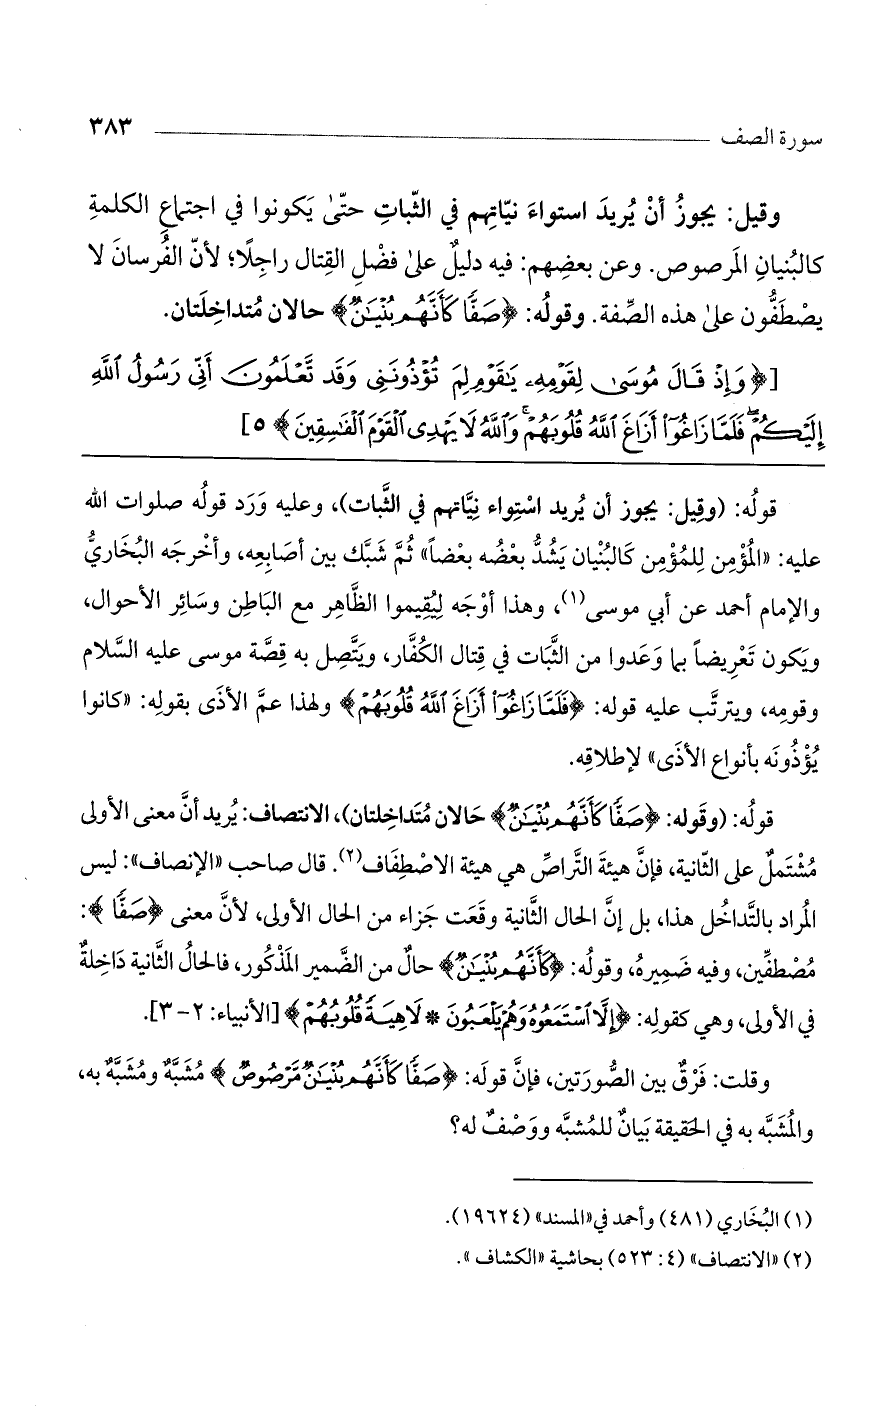 سورة الصف ٣٨٣
وقيل: يجوزُ أنْ يُريدَ استواءَ نيّاتِهم في الثّباتِ حتّىٰ يَكونوا في اجتماعِ الكلمةِ
كالبُنيانِ المَرصوص. وعن بعضِهم: فيه دليلٌ علىٰ فضْلِ القِتال راجِلًا؛ لأنّ الفُرسانَ لا
يصْطَفُّون علىٰ هذه الصِّفة. وقولُه: ﴿صَفًّا كَأَنَّهُم بُنْيَـٰنٌ﴾ حالان مُتداخِلَتان.
[﴿وَإِذْ قَالَ مُوسَىٰ لِقَوْمِهِۦ يَـٰقَوْمِ لِمَ تُؤْذُونَنِى وَقَد تَّعْلَمُونَ أَنِّى رَسُولُ ٱللَّهِ
إِلَيْكُمْ ۖ فَلَمَّا زَاغُوٓا۟ أَزَاغَ ٱللَّهُ قُلُوبَهُمْ ۚ وَٱللَّهُ لَا يَهْدِى ٱلْقَوْمَ ٱلْفَـٰسِقِينَ﴾ ٥]
قولُه: (وقِيل: يجوز أن يُريد اسْتِواء نِيَّاتهم في الثَّبات)، وعليه وَرَد قولُه صلوات الله
عليه: «المُؤْمِن لِلمُؤْمِن كَالبُنْيان يَشُدُّ بعْضُه بعْضاً» ثُمَّ شَبَّك بين أصَابِعِه، وأخْرجَه البُخَاريُّ
والإمام أحمد عن أبي موسى(١)، وهذا أوْجَه لِيُقِيموا الظَّاهِر مع البَاطِن وسَائِر الأحوال،
ويَكون تَعْرِيضاً بما وَعَدوا من الثَّبَات في قِتال الكُفَّار، ويَتَّصِل به قِصَّة موسى عليه السَّلام
وقومِه، ويترتَّب عليه قوله: ﴿فَلَمَّا زَاغُوٓا۟ أَزَاغَ ٱللَّهُ قُلُوبَهُمْ﴾ ولهذا عمَّ الأذَى بقولِه: «كانوا
يُؤْذُونَه بأنواع الأذَى» لإطلاقِه.
قولُه: (وقَوله: ﴿صَفًّا كَأَنَّهُم بُنْيَـٰنٌ﴾ حَالان مُتَداخِلتان)، الانتصاف: يُريد أنَّ معنى الأولى
مُشْتَملٌ على الثّانية، فإنَّ هيئةَ التَّراصِّ هي هيئة الاصْطِفَاف(٢). قال صاحب «الإنصاف»: ليس
المُراد بالتَّداخُل هذا، بل إنَّ الحال الثَّانية وقَعَت جَزاء من الحال الأولى، لأنَّ معنى ﴿صَفًّا﴾:
مُصْطفِّين، وفيه ضَمِيرهُ، وقولُه: ﴿كَأَنَّهُم بُنْيَـٰنٌ﴾ حالٌ من الضَّمير المَذْكُور، فالحالُ الثَّانية دَاخِلةٌ
في الأولى، وهي كقولِه: ﴿إِلَّا ٱسْتَمَعُوهُ وَهُمْ يَلْعَبُونَ * لَاهِيَةً قُلُوبُهُمْ﴾ [الأنبياء: ٢-٣].
وقلت: فَرْقٌ بين الصُّورَتين، فإنَّ قولَه: ﴿صَفًّا كَأَنَّهُم بُنْيَـٰنٌ مَّرْصُوصٌ﴾ مُشَبَّهٌ ومُشَبَّهٌ به،
والمُشَبَّه به في الحَقيقة بَيانٌ للمُشبَّه ووَصْفٌ له؟
(١) البُخَاري (٤٨١) وأحمد في «المسند» (١٩٦٢٤).
(٢) «الانتصاف» (٤: ٥٢٣) بحاشية «الكشاف».